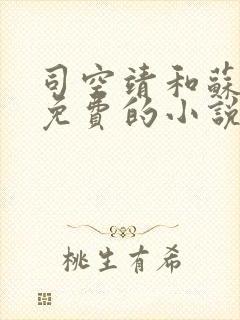 司空靖和蘇
免費的小說
桃生有希